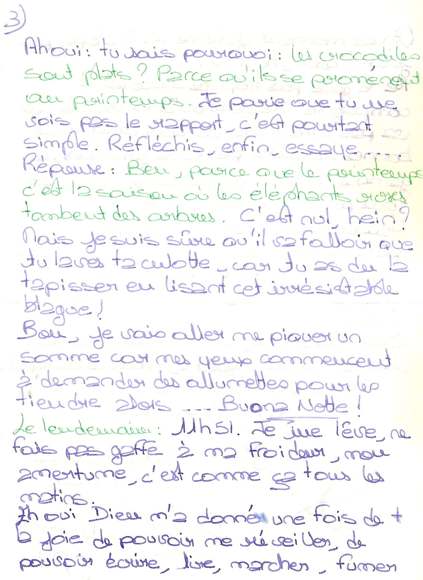 3)
Ah oui: tu sais pourquoi: les crocodiles
sont plats? Parce qu'ils se promènent
au printemps. Je parie que tu ne
vois pas le rapport, c'est pourtant
simple. Réfléchis, enfin, essaye.....
Réponse: Ben, parce que le printemps
c'est la saison où les éléphants roses
tombent des arbres. C'est nul, hein?
Mais je suis sûre qu'il va falloir que
tu laves ta culotte, car tu as du la
tapisser en lisant cet irrésistable
blague!
Bon, je vais aller me piquer un
somme car mes yeux commencent
à demander des allumettes pour les
tiendre alors .... Buona Notte!
Le lendemain: 11h51. Je me lève, ne
fais pas gaffe à ma froideur, mon
amertume, c'est comme ça tous les
matins.
Ah oui Dieu m'a donné une fois de +
la joie de pouvoir me réveiller, de
pouvoir écrire, lire, marcher, fumer